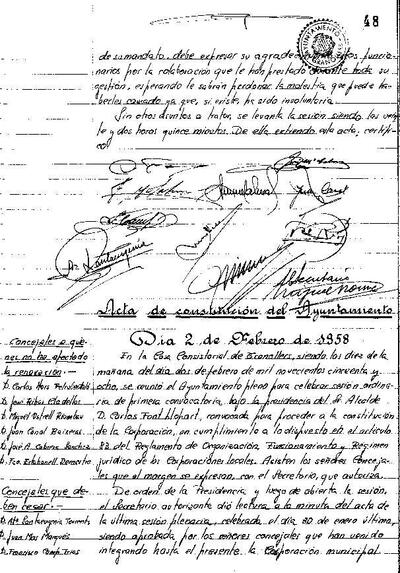 48
AYUNTAMIENTO
de su mandato, debe expresar su agradecimiento a los funcio-
narios por la colaboración que le han prestado durante toda su
gestión, esperando le sabrán perdonar la molestia que pueda ha-
berles causado ya que, si existe, ha sido involuntaria.
Sin otros asuntos a tratar, se levanta la sesión siendo las vein-
te y dos horas quince minutos. De ella extiendo este acta, certifi-
co.
El Secretario
Acta de constitución del Ayuntamiento
Dia 2 de Febrero de 1958
Concejales a quie-
nes no ha afectado
la renovación:
D. Carlos
D. José Ribas
D. Miguel
D. Juan Canal
D. José A. Cabrera
D. Fco. Estabanell Demestre
Concejales que de-
ben cesar:
D. Juan Mas Marqués
D. Francisco
En la Casa Consistorial de Granollers, siendo las diez de la
mañana del día dos de febrero de mil novecientos cincuenta y
ocho, se reunió el Ayuntamiento pleno para celebrar sesión ordina-
ria de primera convocatoria, bajo la presidencia del Sr. Alcalde
D. Carlos Font Llopart, convocada para proceder a la constitución
de la Corporación, en cumplimiento a lo dispuesto en el artículo
83 del Reglamento de Organización, Funcionamiento y Régimen
jurídico de las Corporaciones locales. Asisten los señores Conceja-
les que al margen se expresan, con el Secretario, que autoriza.
De orden de la Presidencia y luego de abierta la sesión,
el Secretario autorizante dió lectura a la minuta del acta de
la última sesión plenaria, celebrada el día 30 de enero último,
siendo aprobada por los señores concejales que han venido
integrando hasta el presente la Corporación municipal